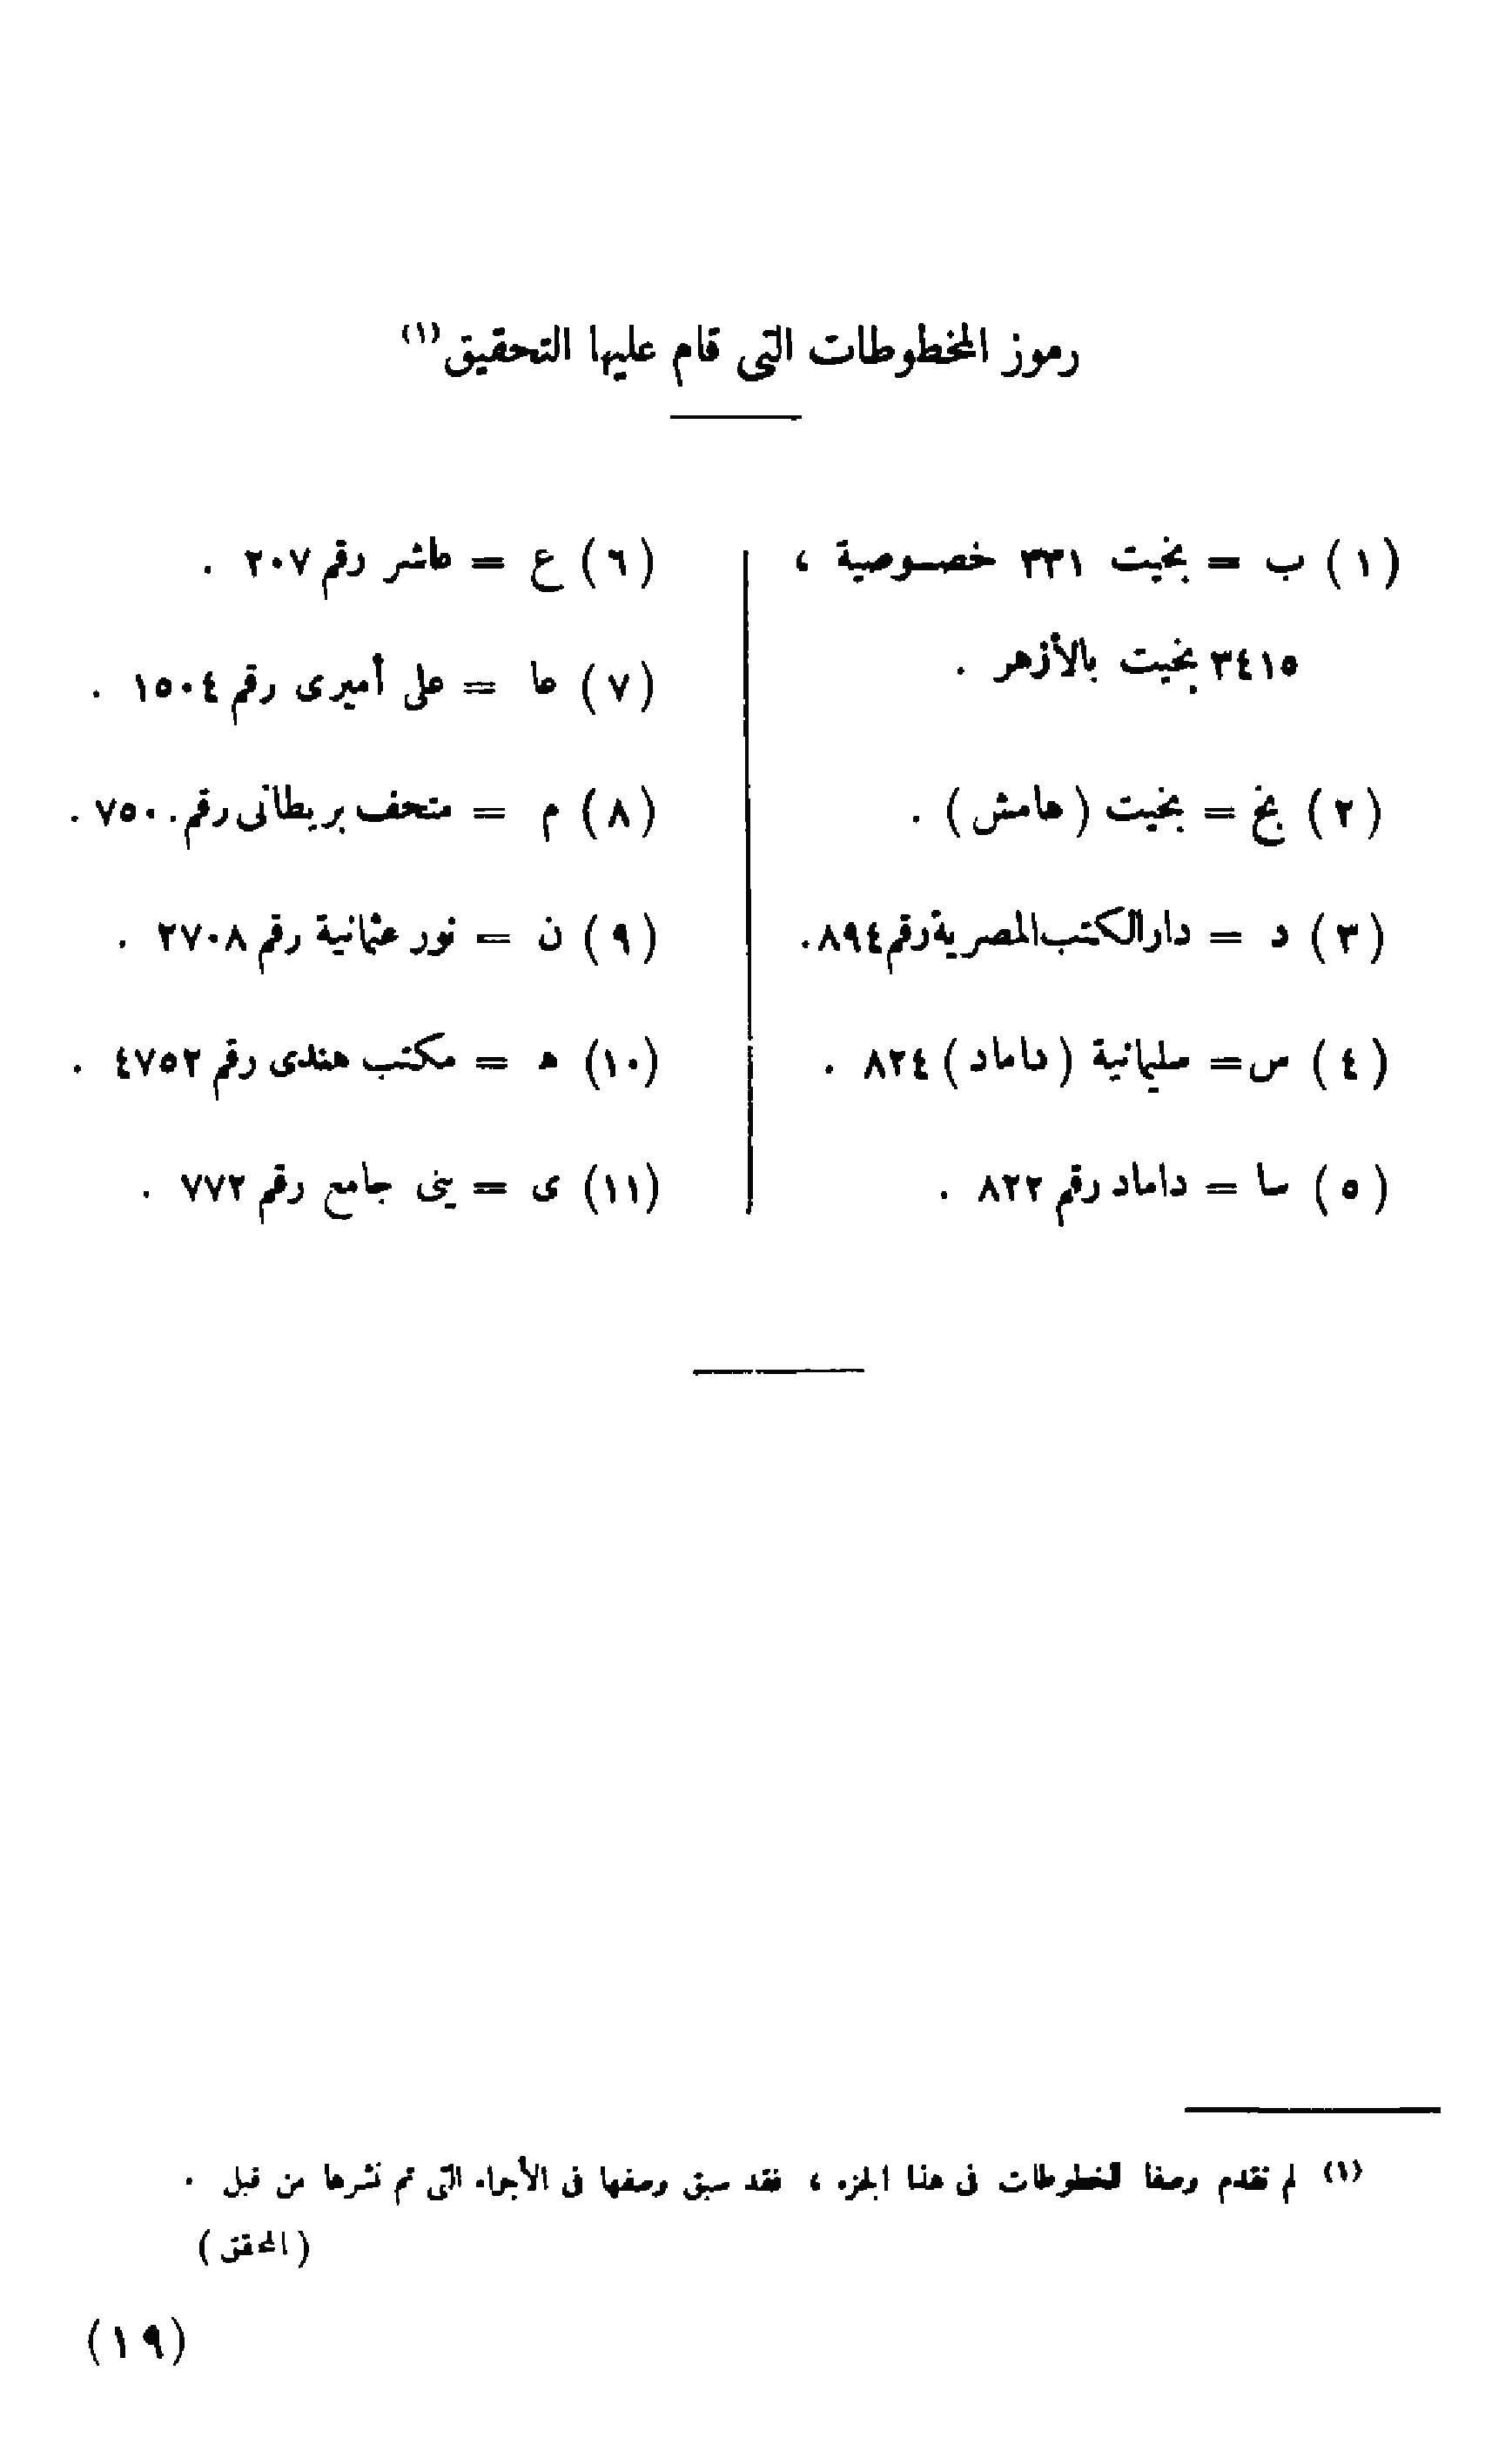 رموز المخطوطات التى قام عليها التحقيق (١)
(١) ب = بخيت ٣٣١ خصوصية ،
٣٤١٥ بخيت بالأزهر .
(٢) بخ = بخيت (هامش) .
(٣) د = دار الكتب المصرية رقم ٨٩٤ .
(٤) س = سليمانية (داماد) ٨٢٤ .
(٥) سا = داماد رقم ٨٢٢ .
(٦) ع = عاشر رقم ٢٠٧ .
(٧) عا = على أميرى رقم ١٥٠٤ .
(٨) م = متحف بريطانى رقم ٧٥٠٠ .
(٩) ن = نور عثمانية رقم ٢٧٠٨ .
(١٠) ه = مكتب هندى رقم ٤٧٥٢ .
(١١) ى = ينى جامع رقم ٧٧٢ .
(١) لم نقدم وصفا للخطوطات فى هذا الجزء ، فقد سبق وصفها فى الأجزاء التى تم نشرها من قبل .
(المحقق)
(١٩)